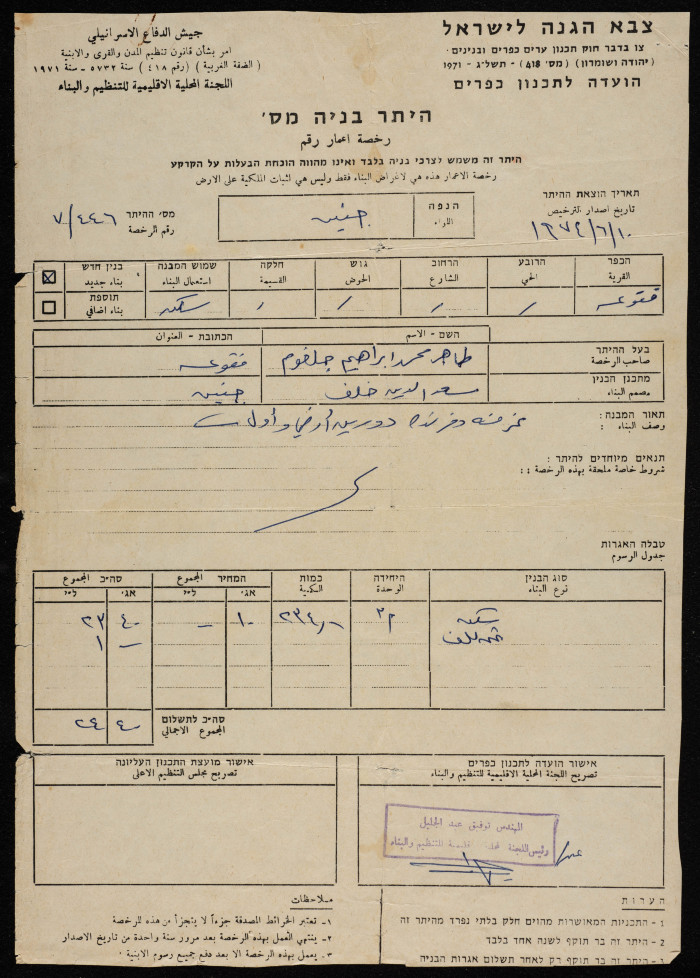 צבא הגנה לישראל
צו בדבר חוק תכנון ערים כפרים ובנינים ·
(יהודה ושומרון) (מס׳ 418) - תשל״ג - 1971
הועדה לתכנון כפרים
جيش الدفاع الاسرائيلي
امر بشأن قانون تنظيم المدن والقرى والابنية
( الضفة الغربية ) (رقم ٤١٨) سنة ٥٧٣٢ - سنة ١٩٧١
اللجنة المحلية الاقليمية للتنظيم والبناء
היתר בניה מס׳
رخصة اعمار رقم
היתר זה משמש לצרכי בניה בלבד ואינו מהווה הוכחת הבעלות על הקרקע
رخصة الاعمار هذه هي لاغراض البناء فقط وليس هي اثبات الملكية على الارض
תאריך הוצאת ההיתר
تاريخ اصدار الترخيص
١٩٧٤/٦/١٠
הנפה
اللواء
جنين
מס׳ ההיתר
رقم الرخصة
٧/٤٤٦
הכפר הרובע הרחוב גוש חלקה שמוש המבנה בנין חדש
القرية الحي الشارع الحوض القسيمة استعمال البناء بناء جديد
תוספת
بناء اضافي
فقوعة / / / / سكن
השם - الاسم הכתובת - العنوان
בעל ההיתר
صاحب الرخصة
طاهر محمد ابراهيم جلغوم فقوعة
מתכנן הבנין
مصمم البناء
سعد الدين خلف جنين
תאור המבנה:
وصف البناء :
دورين أرضي وأول
תנאים מיוחדים להיתר :
شروط خاصة ملحقة بهذه الرخصة ::
טבלה האגרות
جدول الرسوم
סוג הבנין היחידה כמות המחיר المجموع סה״כ المجموع
نوع البناء الوحدة الكمية אג׳ ל״י אג׳ ל״י
سكن م٢ ٢٣٤٫٠٠ ١٠ – ٤٠ ٢٣
– ١
סה״כ לתשלום
المجموع الاجمالي
٤٠ ٢٤
אישור הועדה לתכנון כפרים
تصريح اللجنة المحلية الاقليمية للتنظيم والبناء
אישור מועצת התכנון העליונה
تصريح مجلس التنظيم الاعلى
المهندس توفيق عبد الجليل
رئيس اللجنة المحلية الاقليمية للتنظيم والبناء
הערות
1 - התכניות המאושרות מהוים חלק בלתי נפרד מהיתר זה
2 - היתר זה בר תוקף לשנה אחד בלבד
היתר זה בר תוקף רק לאחר תשלום אגרות הבניה
ملاحظات
١ - تعتبر الخرائط المصدقة جزءاً لا يتجزأ من هذه للرخصة
٢ - ينتهي العمل بهذه الرخصة بعد مرور سنة واحدة من تاريخ الاصدار
٣ - يعمل بهذه الرخصة الا بعد دفع جميع رسوم الابنية ·